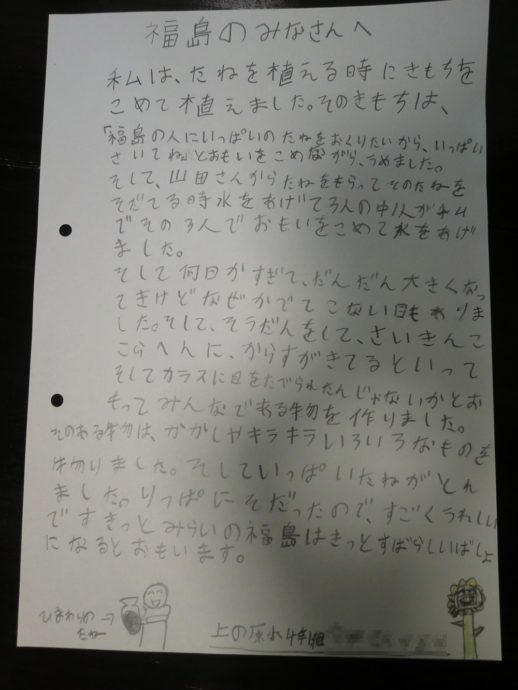 福島のみなさんへ
私は、たねを植える時にきもちを
こめて植えました。そのきもちは、
「福島の人にいっぱいのたねをおくりたいから、いっぱい
さいてね」とおもいをこめながら、うめました。
そして、山田さんからたねをもらってそのたねを
そだてる時水をあげて3人の中1人が私
でその3人でおもいをこめて水をあげ
ました。
そして何日かすぎて、だんだん大きくなっ
てきけどなぜかでてこない日もありま
した。そして、そうだんをして、さいきんこ
こらへんに、からすがきてるといって
そしてカラスに目をたべられたんじゃないかとお
もってみんなである物を作りました。
そのある物は、かかしやキラキラいろいろなものを
りました。そしていっぱいたねがとれ
ました。りっぱにそだったので、すごくうれしい
ですきっとみらいの福島はきっとすばらしいばしょ
になるとおもいます。
ひまわりの→
たねー
上の原小4年組